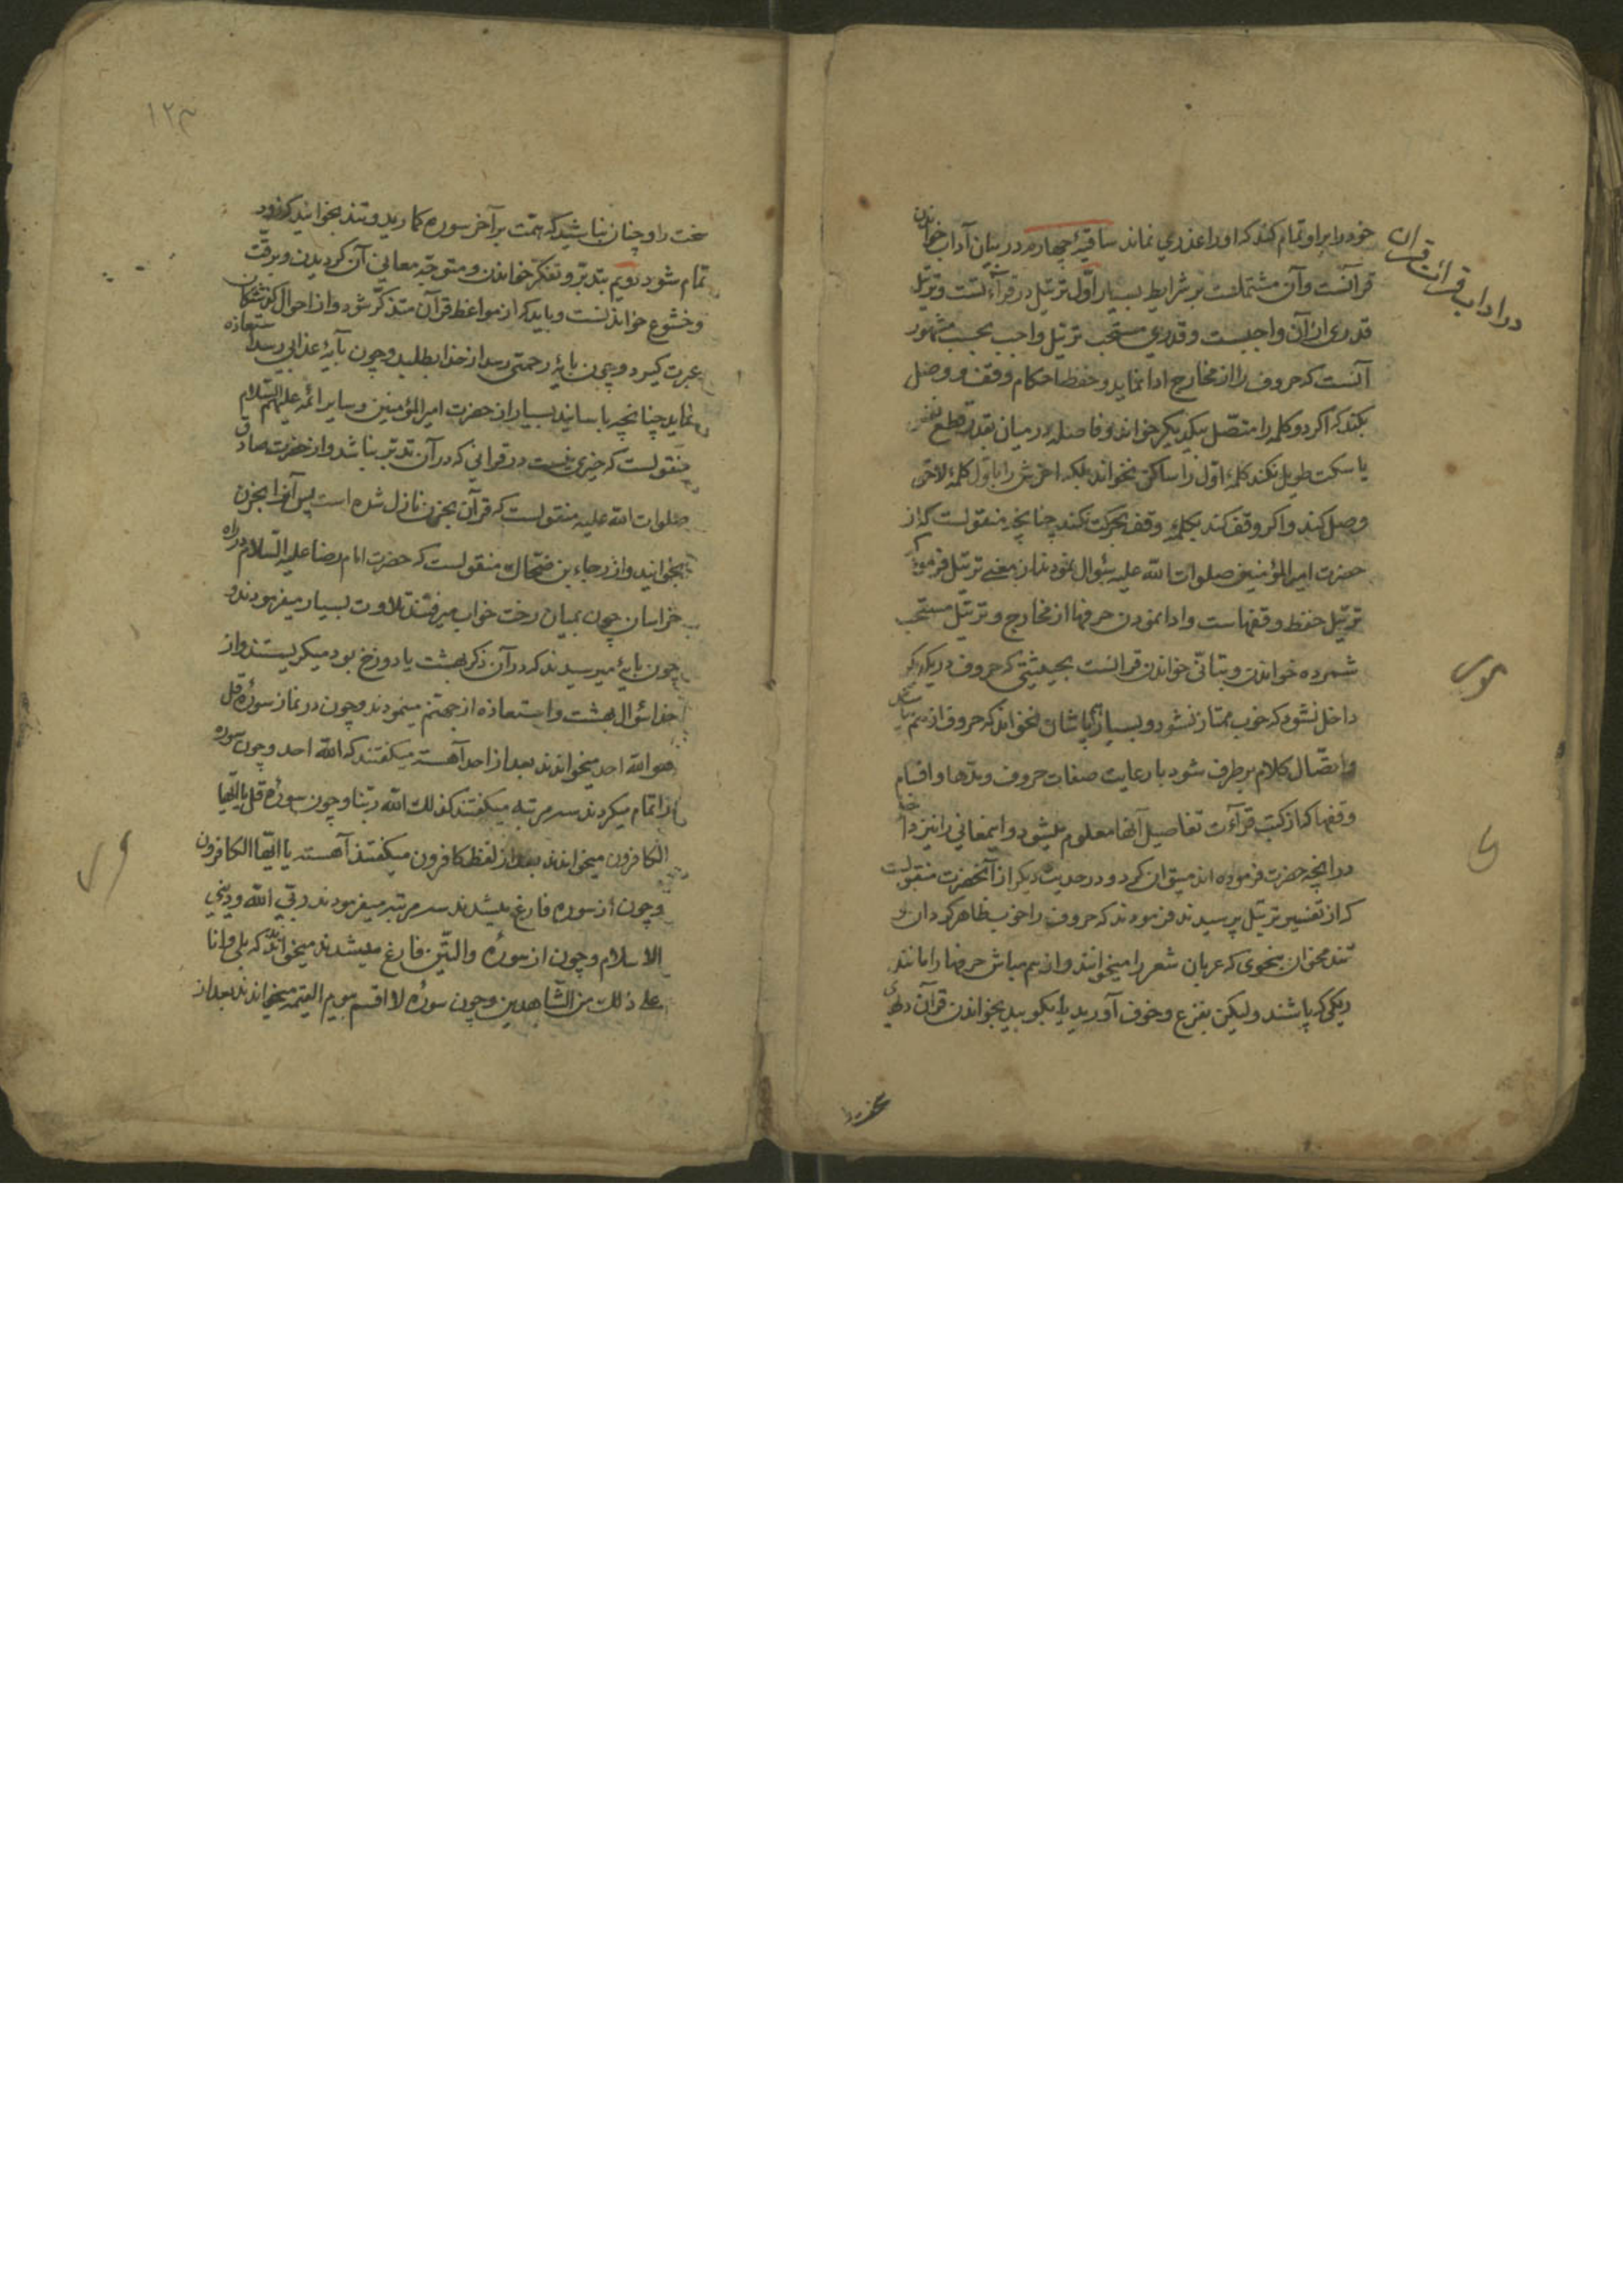 خود را بر او تمام کند که او را عذری نماند ساقیهٔ چهارم در بیان آداب خواندن
در اداب قرائت قران
قرآنست و آن مشتملست بر شرایط بسیار اوّل ترتیل در قرآءتست و ترتیل
قدری از آن واجبست و قدری مستحب ترتیل واجب بحسب مشهور
آنست که حروف را از مخارج ادا نماید و حفظ احکام وقف و وصل
بکند که اگر دو کلمه را متصّل بیکدیگر خواند و فاصله در میان بقدر قطع نفس
یا سکت طویل نکند کلمهٔ اوّل را ساکن نخواند بلکه اخرش را باوّل کلمهٔ لاحق
وصل کند و اگر وقف کند بکلمهٔ وقف بحرکت نکند چنانچه منقولست که از
حضرت امیر المؤمنین صلوات الله علیه سؤال نمودند از معنی ترتیل فرمود که
ترتیل حفظ وقفهاست و ادا نمودن حرفها از مخارج و ترتیل مستحب
شمرده خواندن و بتأنّی خواندن قرآنست بحیثیتی که حروف در یکدیگر
داخل نشود که خوب ممتاز نشود و بسیار هم پاشان نخواند که حروف از هم بپاشد
و اتصّال کلام برطرف شود با رعایت صفات حروف و مدّها و اقسام
وقفها که از کتب قرآءت تفاصیل آنها معلوم میشود و این معانی را نیز
در آنچه حضرت فرموده اند میتوان کرد و در حدیث دیگر از آنحضرت منقولست
که از تفسیر ترتیل پرسیدند فرمودند که حروف را خوب ظاهر گردان و
تند مخوان بنحوی که عربان شعر را میخوانند و از هم مپاش حرفها را مانند
ریگی که پاشند ولیکن بفزع و خوف آورید یا بکوبید بخواندن قرآن دلهای
۱۲۳
سخت را و چنان نباشید که همّت بر آخر سوره گمارید و تند بخوانید که زود
تمام شود دویم بتدبّر و تفکّر خواندن و متوجّه معانی آن گردیدن و برقّت
و خشوع خواندنست و باید که از مواعظ قرآن متذکّر شود و از احوال گذشتگان
عبرت گیرد و چون بآیهٔ رحمتی رسد از خدا بطلبد و چون بآیهٔ عذابی رسد استعاذه
نماید چنانچه باسانید بسیار از حضرت امیر المؤمنین و سایر ائمّه علیهم السّلام
منقولست که خیری نیست در قرآنی که در آن تدبّر نباشد و از حضرت صادق
صلوات الله علیه منقولست که قرآن بحزن نازل شده است پس آنرا بحزن
بخوانید و از رجاء بن ضحّاک منقولست که حضرت امام رضا علیه السّلام در راه
خراسان چون بمیان رخت خواب میرفتند تلاوت بسیار میفرمودند و
چون بآیهٔ میرسیدند که در آن ذکر بهشت یا دوزخ بود میگریستند و از
خدا سئوال بهشت و استعاذه از جهنّم مینمودند و چون در نماز سورهٔ قل
هو الله احد میخواندند بعد از احد آهسته میگفتند که الله احد و چون سوره
را تمام میکردند سه مرتبه میگفتند کذلک الله ربّنا و چون سورهٔ قل یا ایّها
الکافرون میخواندند بعد از لفظ کافرون میگفتند آهسته یا ایّها الکافرون
و چون از سوره فارغ میشدند سه مرتبه میفرمودند ربّی الله و دینی
الاسلام و چون از سورهٔ والتین فارغ میشدند میخواندند که بلی و انا
علی ذلک من الشّاهدین و چون سورهٔ لا اقسم بیوم القیمه میخواندند بعد از